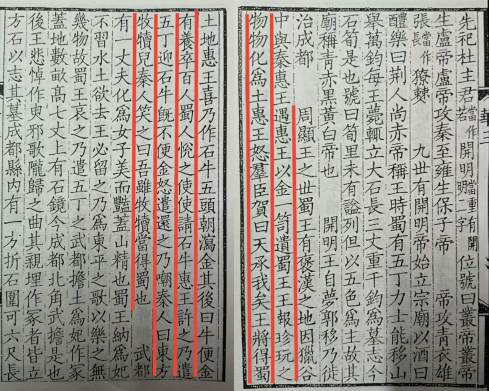 先祀杜主君若當作開明當重有開明二字位號曰叢帝叢帝
生盧帝盧帝攻秦至雍生保子帝 帝攻青衣雄
張當作長獠僰 九世有開明帝始立宗廟以酒曰
醴樂曰荆人尚赤帝稱王時蜀有五丁力士能移山
舉萬鈞每王薨輒立大石長三丈重千鈞爲墓志今
石筍是也號曰筍里未有諡列但以五色爲主故其
廟稱青赤黑黄白帝也 開明王自夢郭移乃徙
治成都 周顯王之世蜀王有褒漢之地因獵谷
中與秦惠王遇惠王以金一笥遺蜀王王報珍玩之
物物化爲土惠王怒羣臣賀曰天承我矣王將得蜀
土地惠王喜乃作石牛五頭朝瀉金其後曰牛便金
有養卒百人蜀人悅之使使請石牛惠王許之乃遣
五丁迎石牛旣不便金怒遣還之乃嘲秦人曰東方
牧犢兒秦人笑之曰吾雖牧犢當得蜀也 武都
有一丈夫化爲女子美而豔蓋山精也蜀王納爲妃
不習水土欲去王必留之乃爲東平之歌以樂之無
幾物故蜀王哀之乃遣五丁之武都擔土爲妃作冢
蓋地數畝高七丈上有石鏡今成都北角武擔是也
後王悲悼作臾邪歌龍歸之曲其親埋作冢者皆立
方石以志其墓成都縣內有一方折石圍可六尺長